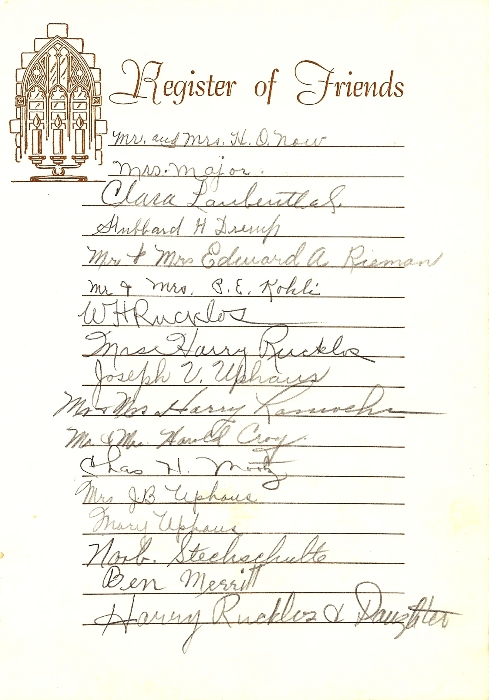 Register of Friends
Mr. and Mrs. H. O. Now
Mrs. Major.
Clara Laubenthal
Hubbard H
Mr & Mrs Edward A. Rieman
Mr & Mrs. P. E. Kohli
WH Rucklos
Mrs Harry Rucklos
Joseph V. Uphaus
Mr & Mrs Harry
Mr. & Mrs. Harold Croy
Chas H.
Mrs JB Uphaus
Mary Uphaus
Norb. Stechschulte
Ben Merritt
Harry Rucklos & Daughter